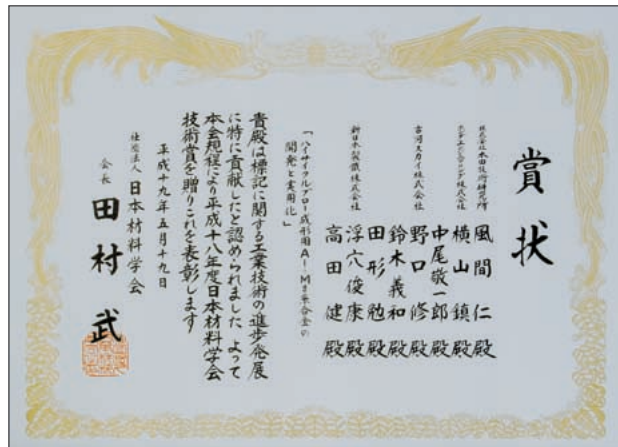 賞状
株式会社本田技術研究所
風間 仁 殿
横山 鎮 殿
中尾敬一郎 殿
古河スカイ株式会社
野口 修 殿
鈴木義和 殿
新日本製鐵株式会社
田形 勉 殿
浮穴俊康 殿
高田 健 殿
「ハイサイクルブロー成形用Al-Mg系合金の
開発と実用化」
貴殿は標記に関する工業技術の進歩発展
に特に貢献したと認められました よって
本会規程により平成十八年度日本材料学会
技術賞を贈りこれを表彰します
平成十九年五月十九日
社団法人 日本材料学会
会長 田村 武